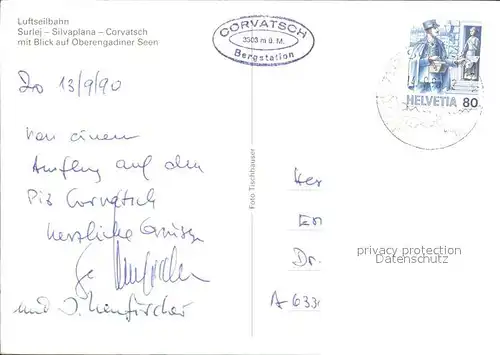 Luftseilbahn
Surlej – Silvaplana – Corvatsch
mit Blick auf Oberengadiner Seen
CORVATSCH
3303 m ü. M.
Bergstation
HELVETIA 80
Do 13/9/90
Von einem
Ausflug auf den
Piz Corvatsch
herzliche Grüsse
und
Foto Tischhauser
Her
Dr.
A-633
privacy protection
Datenschutz